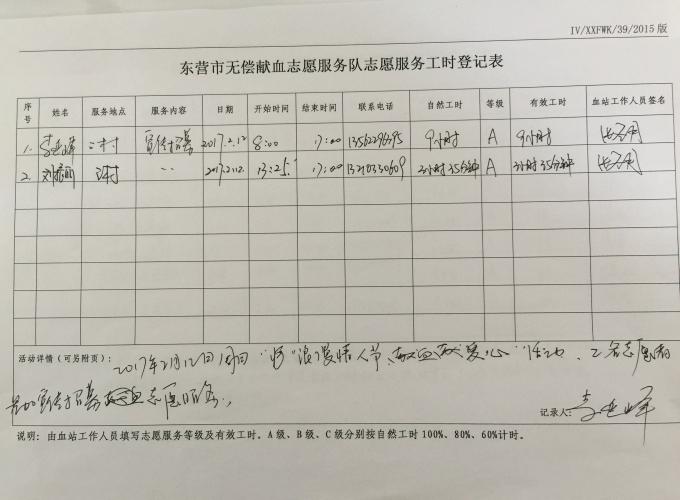 IV/XXFWK/39/2015 版
东营市无偿献血志愿服务队志愿服务工时登记表
序号 姓名 服务地点 服务内容 日期 开始时间 结束时间 联系电话 自然工时 等级 有效工时 血站工作人员签名
1. 李 峰 三村 宣传招募 2017.2.12 8:00 17:00 13562296395 9小时 A 9小时
2. 刘 丽 三村 〃 2017.2.12. 13:25 17:00 13210330609 3小时35分钟 A 3小时35分钟
活动详情(可另附页): 2017年2月12日周日 “ “浪漫情人节,献血献爱心”活动、2名志愿者
参加宣传招募献血志愿服务.
记录人: 李 峰
说明:由血站工作人员填写志愿服务等级及有效工时。A 级、B 级、C 级分别按自然工时 100%、80%、60%计时。